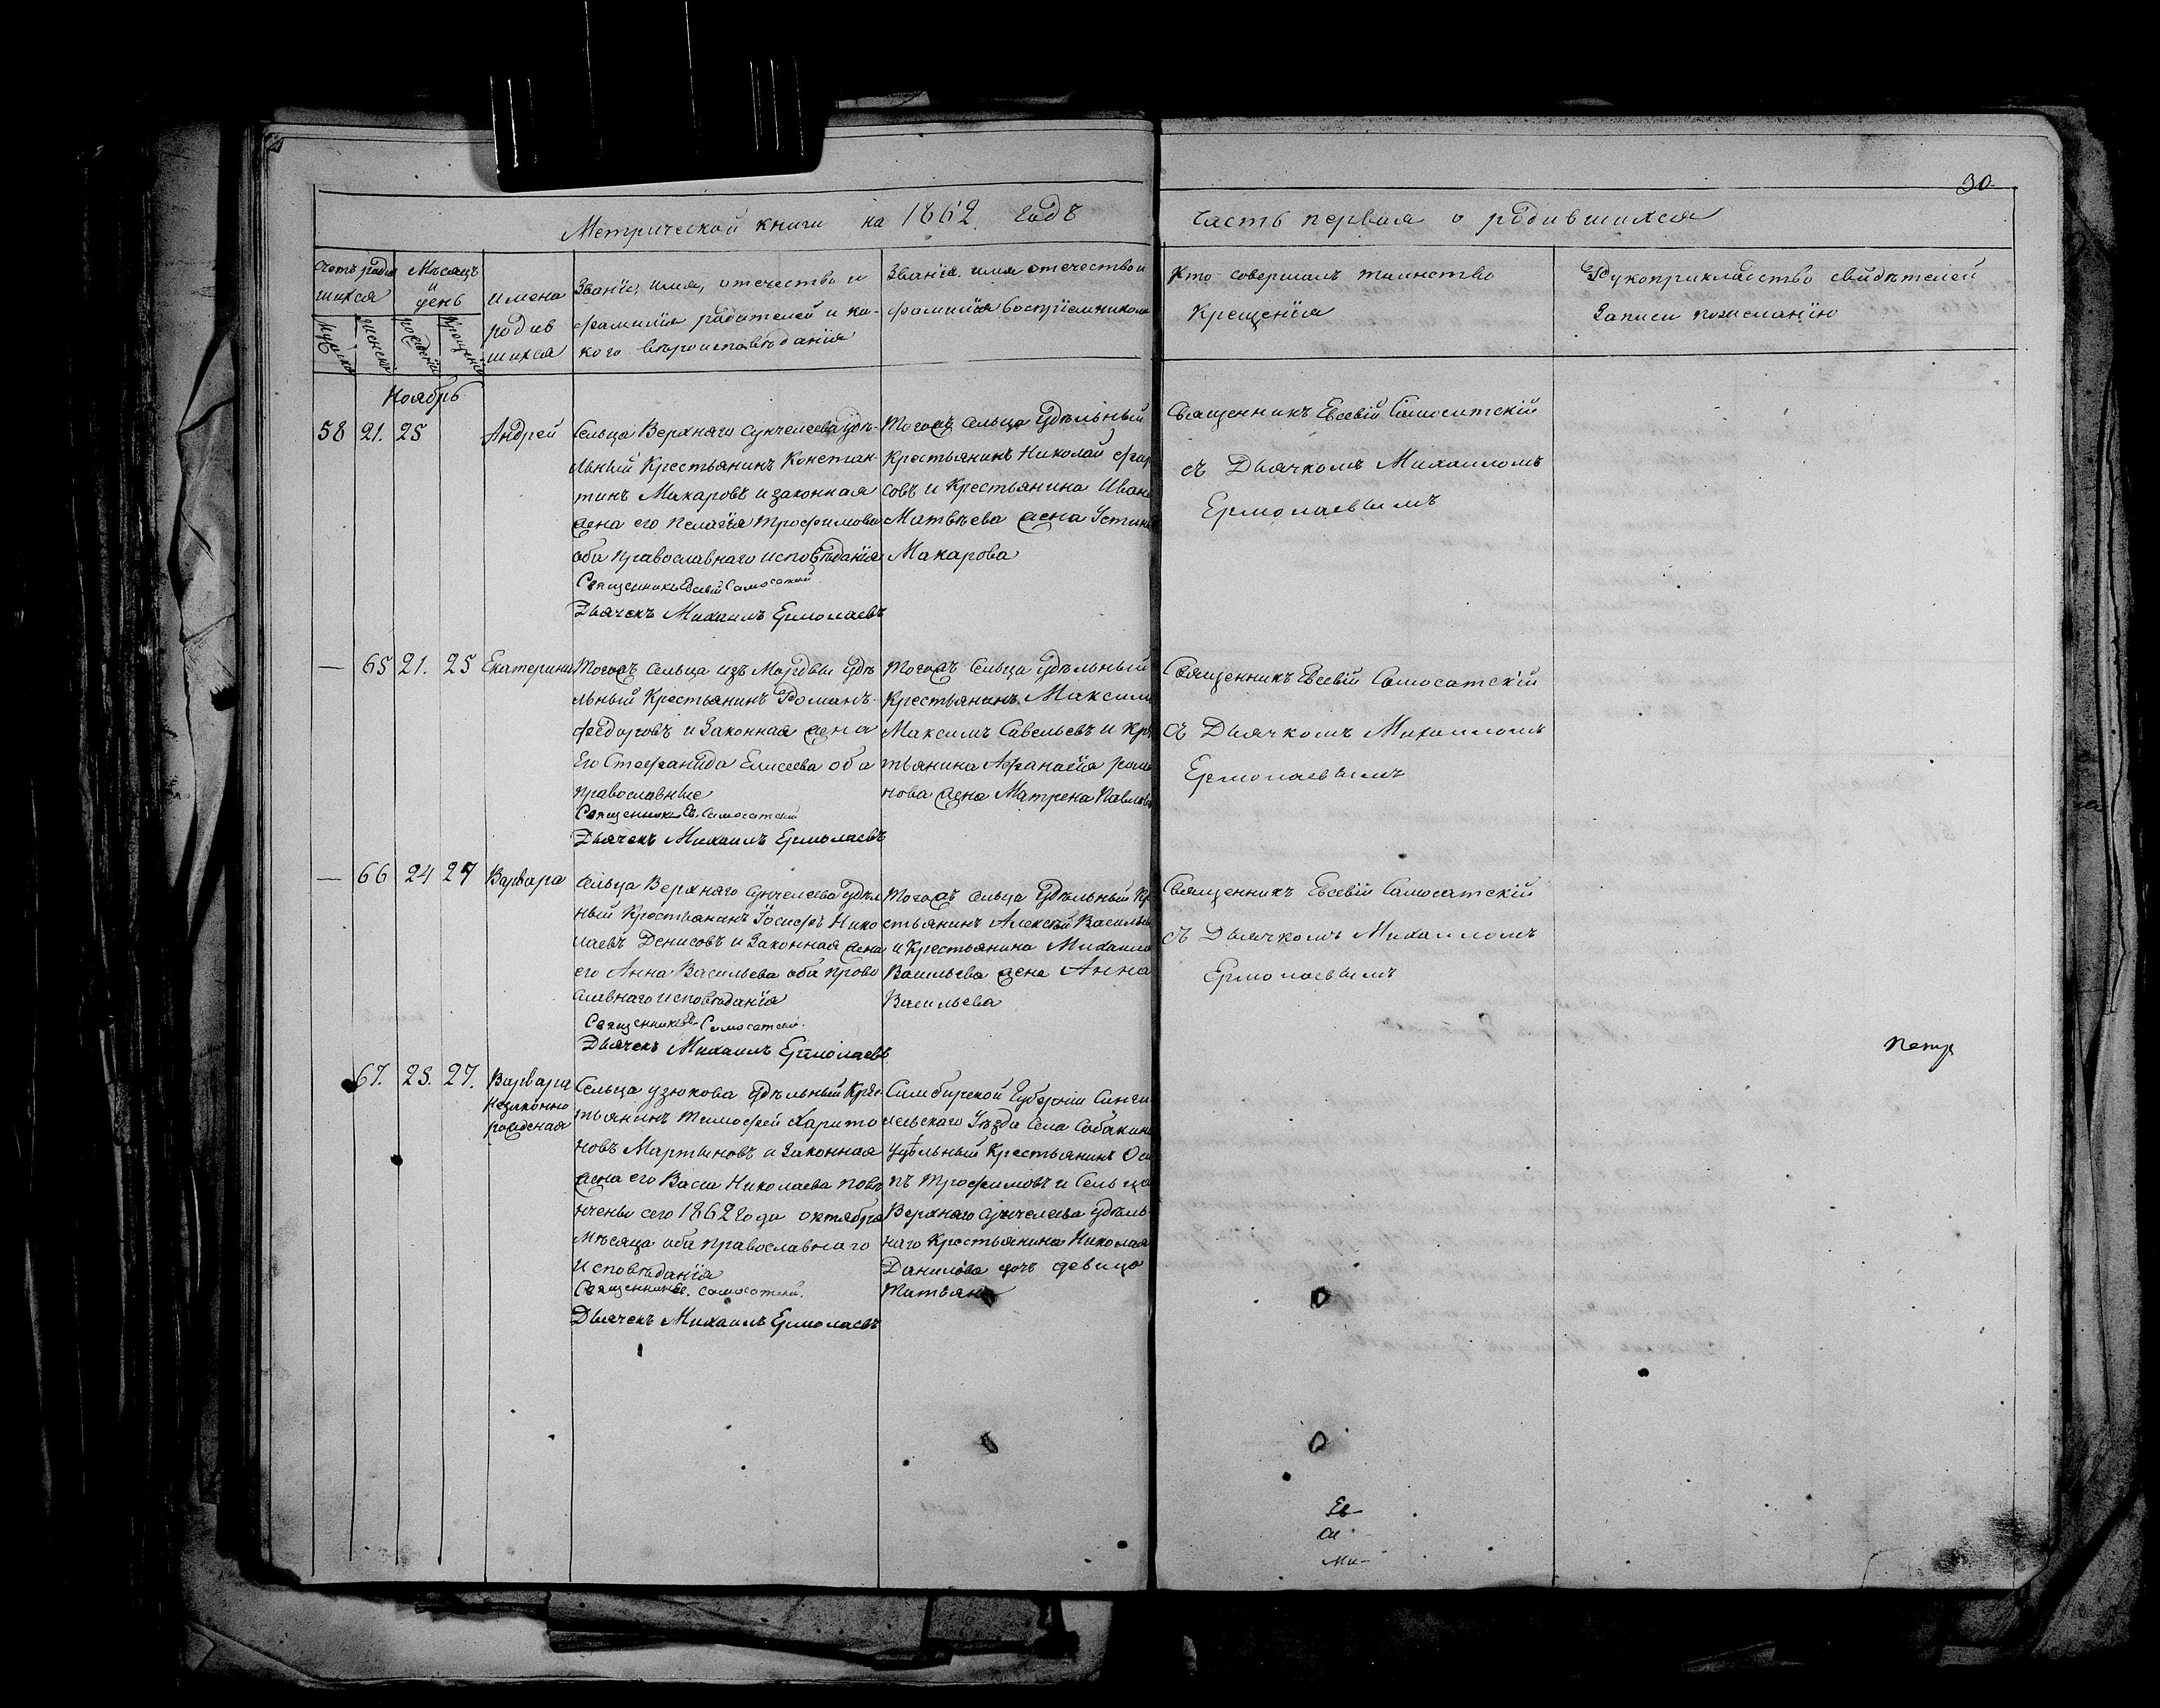 30.
Метрической книги на 1862. годъ
часть первая о родившихся
Счетъ родив
шихся
мужеска
женска
Мѣсяцъ
и
день
рожденія
крещенія
имена
родив
шихся
Званіе, имя, отечество и
фамилія родителей и ка-
кого вѣроисповѣданія
Званіе. имя отечество и
фамилія воспріемников
Кто совершалъ таинство
Крещенія
Рукоприкладство свидѣтелей
Записи по желанію
Ноябрь
58 21. 25 Андрей
Сельца Верхняго Сунчелеева удѣ-
льный Крестьянинъ Констан-
тинъ Макаровъ и законная
жена его Пелагія Трофимова
оба православнаго исповѣданія
Священникъ Евсевій Самосатскій
Дьячекъ Михаилъ Ермолаевъ
Тогожъ сельца Удѣльный
Крестьянинъ Николай
совъ и Крестьянина Иван
Матвѣева жена Устин
Макарова
Священникъ Евсевій Самосатскій
съ Дьячкомъ Михаиломъ
Ермолаевымъ
— 65 21. 25 Екатерина
Тогожъ Сельца изъ Мордвы Удѣ
льный Крестьянинъ Романъ
Федоровъ и Законная жена
Его Стефанида Елисеева оба
православные
Священникъ Ев. Самосатскій
Дьячекъ Михаилъ Ермолаевъ
Тогожъ Сельца Удѣльный
Крестьянинъ Максим
Максимъ Савельевъ и Кре
тьянина Афанасія рома
нова жена Матрена Павлов
Священникъ Евсевій Самосатскій
съ Дьячкомъ Михаиломъ
Ермолаевымъ
— 66 24 27 Варвара
Сельца Верхняго Сунчелеева Удѣл
ный Крестьянинъ Іосифъ Нико
лаевъ Денисовъ и Законная жена
его Анна Васильева оба право
славнаго исповѣданія
Священникъ Ев. Самосатскій.
Дьячекъ Михаилъ Ермолаевъ
Тогожъ Сельца Удѣльный Кр
стьянинъ Алексѣй Васильев
и Крестьянина Михаила
Васильева жена Анна
Васильева
Священникъ Евсевій Самосатскій
съ Дьячкомъ Михаиломъ
Ермолаевымъ
Петр
67. 25. 27. Варвара
незаконно
рожденая
Сельца Узюкова Удѣльный Крес
тьянинъ Тимофей Харито
новъ Мартыновъ и Законная
жена его Васса Николаева повѣ
нчены сего 1862 года октября
Мѣсяца оба православнаго
Исповѣданія
Священникъ Ев. Самосатскій.
Дьячекъ Михаилъ Ермолаевъ
Симбирской Губерніи Синги
леевскаго Уѣзда Села Собакин
Удѣльный Крестьянинъ Оси
пъ Трофимовъ и Сельца
Верхняго Сунчелеева Удѣль
наго Крестьянина Николая
Данилова дочь девица
Татьяна
Ев-
Ми-